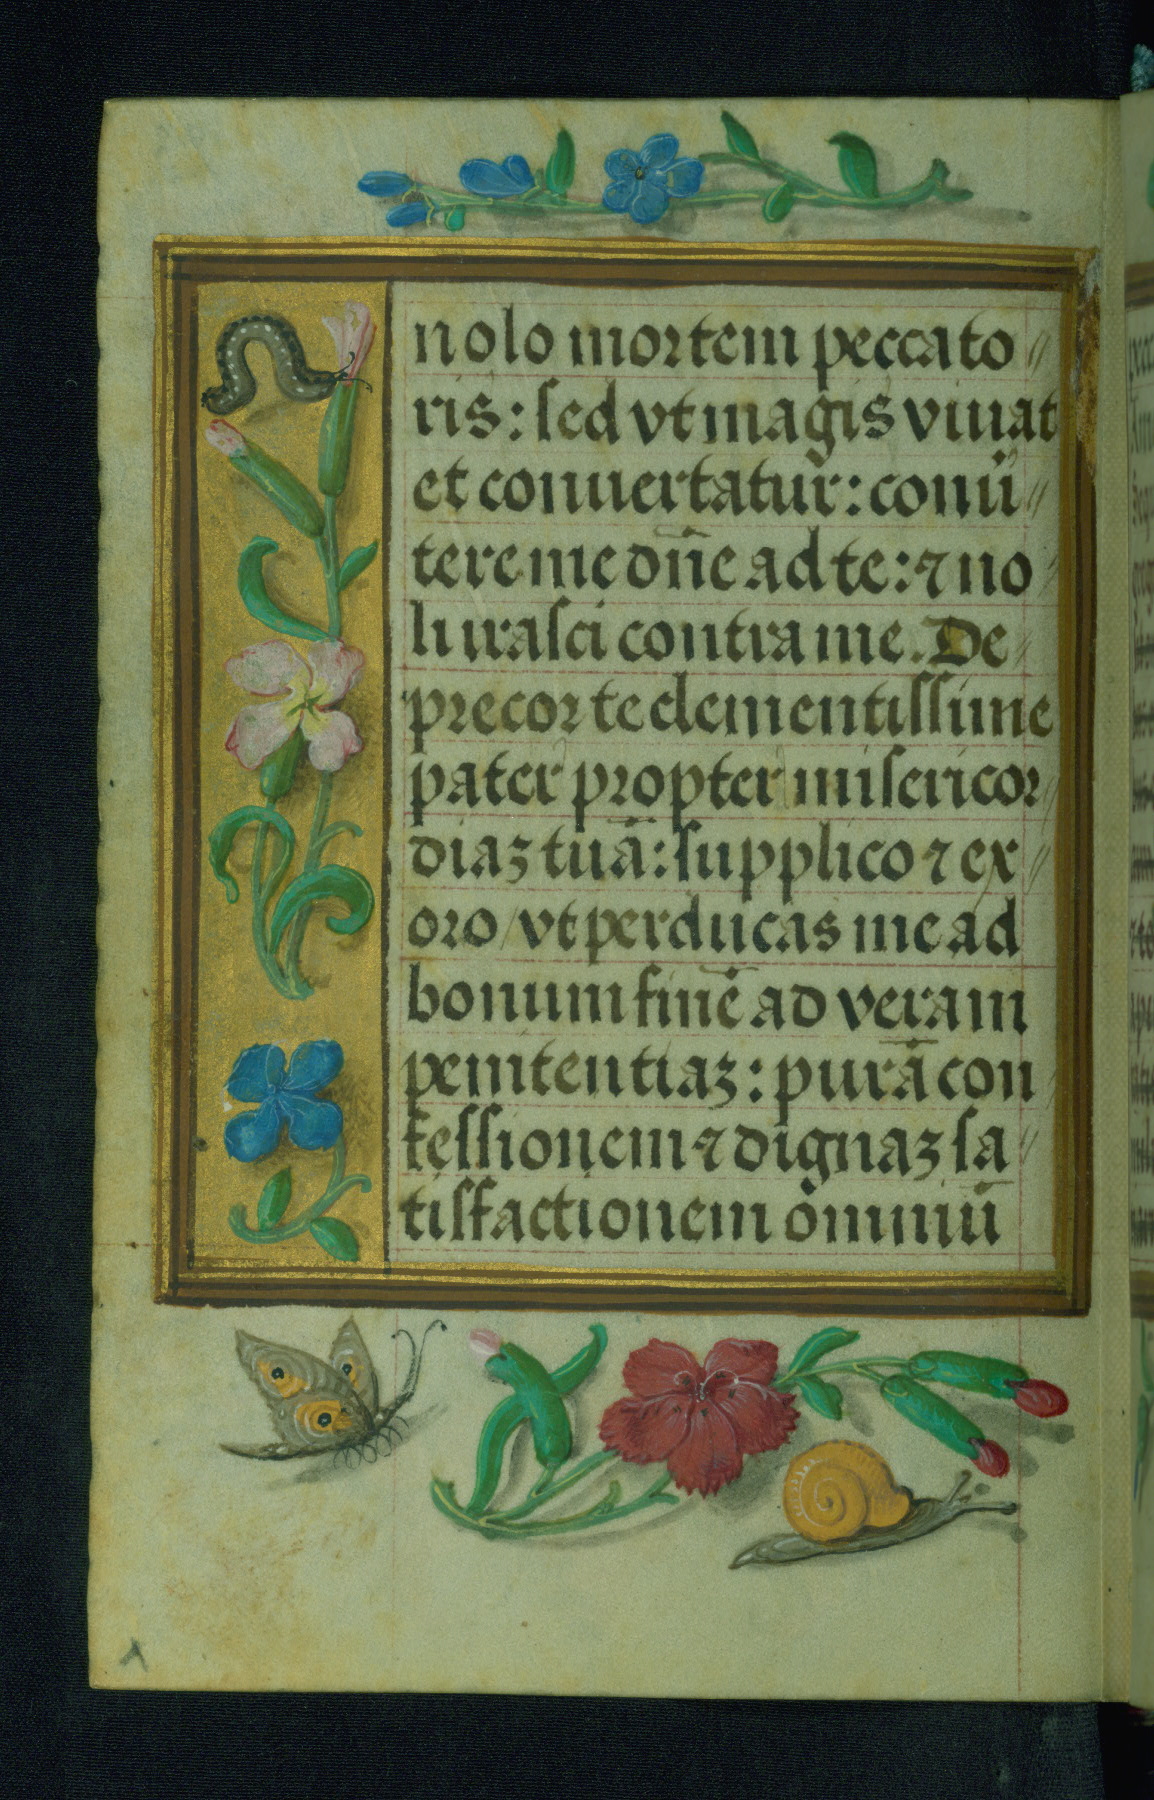 nolo mortem peccato
ris: sed vt magis viuat
et conuertatur: conũ
tere me dñe ad te: ⁊ no
li irasci contra me. De
precor te clementissime
pater propter misericor
diaꝫ tuã: supplico ⁊ ex
oro / vt perducas me ad
bonum finẽ ad veram
penitentiaꝫ: purã con
fessionem ⁊ dignaꝫ sa
tisfactionem omniũ